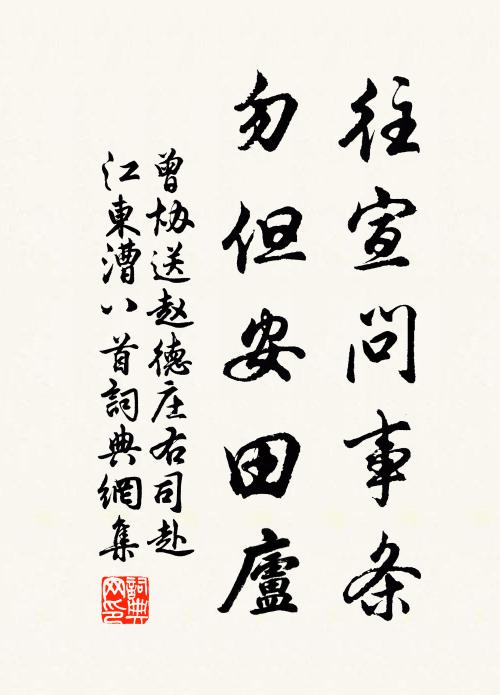 往宣问事条
勿但安田廬
曾协送赵德庄右司赴
江東漕八首詞典網集
詞典网印